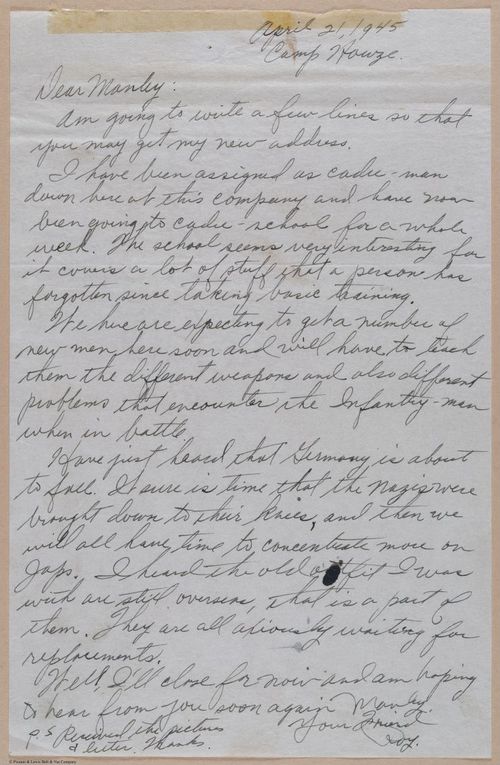 April 21, 1945
Camp Howze.
Dear Manley:
Am going to write a few lines so that
you may get my new address.
I have been assigned as cadre-man
down here at this company and have now
been going to cadre-school for a whole
week. The school seems very interesting for
it covers a lot of stuff that a person has
forgotten since taking basic training.
We here are expecting to get a number of
new men here soon and will have to teach
them the different weapons and also different
problems that encounter the Infantry-man
when in battle
Have just heard that Germany is about
to fall. It sure is time that the Nazis were
brought down to their knees, and then we
will all have time to concentrate more on
Japs. I heard the old outfit I was
with are still overseas, that is a part of
them. They are all anxiously waiting for
replacements.
Well, I'll close for now and am hoping
to hear from you soon again Manley.
Your Friend
P.S Received the pictures
& letter. Thanks.
© Picanet & Lewis Bolt & Nut Company